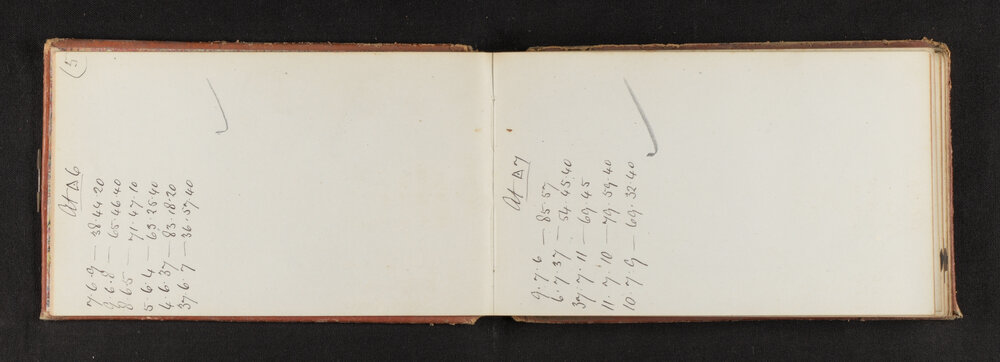 (5
At △6
7.6.9 — 38.44.20
9.6.8 — 65.46.40
8.6.5 — 71.47.10
5.6.4 — 63.25.40
4.6.37 — 83.18.20
37.6.7 — 36.57.40
At △7
9.7.6 — 85.57
6.7.37 — 54.45.40
37.7.11 — 69.45
11.7.10 — 79.59.40
10.7.9 — 69.32.40